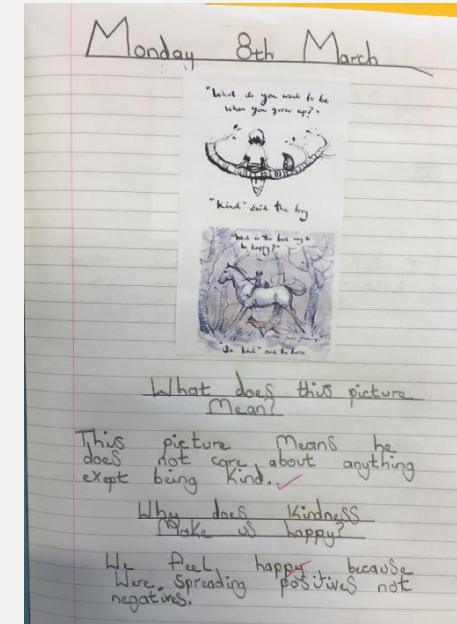 Monday 8th March
"What do you want to be
when you grow up?"
"Kind" said the boy
"What is the best way to
be happy?"
"Be kind" said the horse
What does this picture
Mean?
This picture means he
does not care about anything
exept being kind.
Why does kindness
Make us happy?
We feel happy because
Were spreading positives not
negatives.